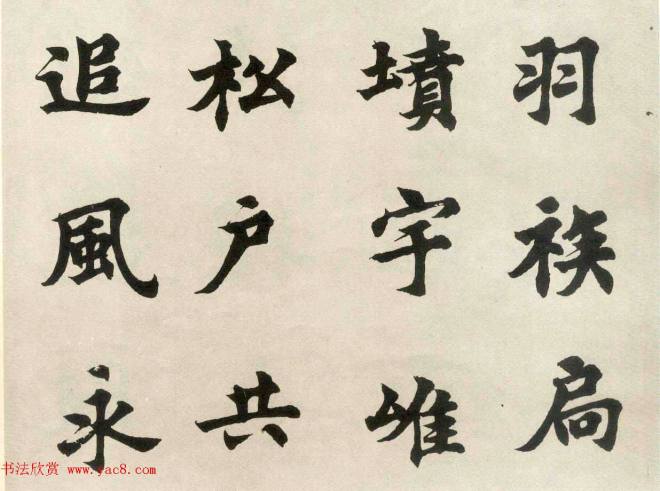 羽族扃
墳宇唯
松户共
追風永
书法欣赏 www.yac8.com